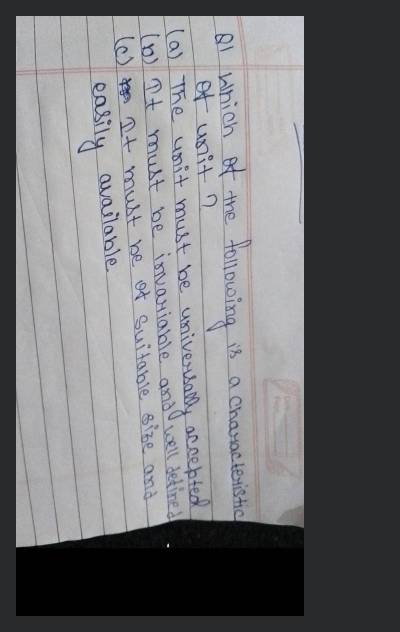 Q1 Which of the following is a characteristic
of unit ?
(a) The unit must be universally accepted
(b) It must be invariable and well defined
(c) It must be of suitable size and
easily available